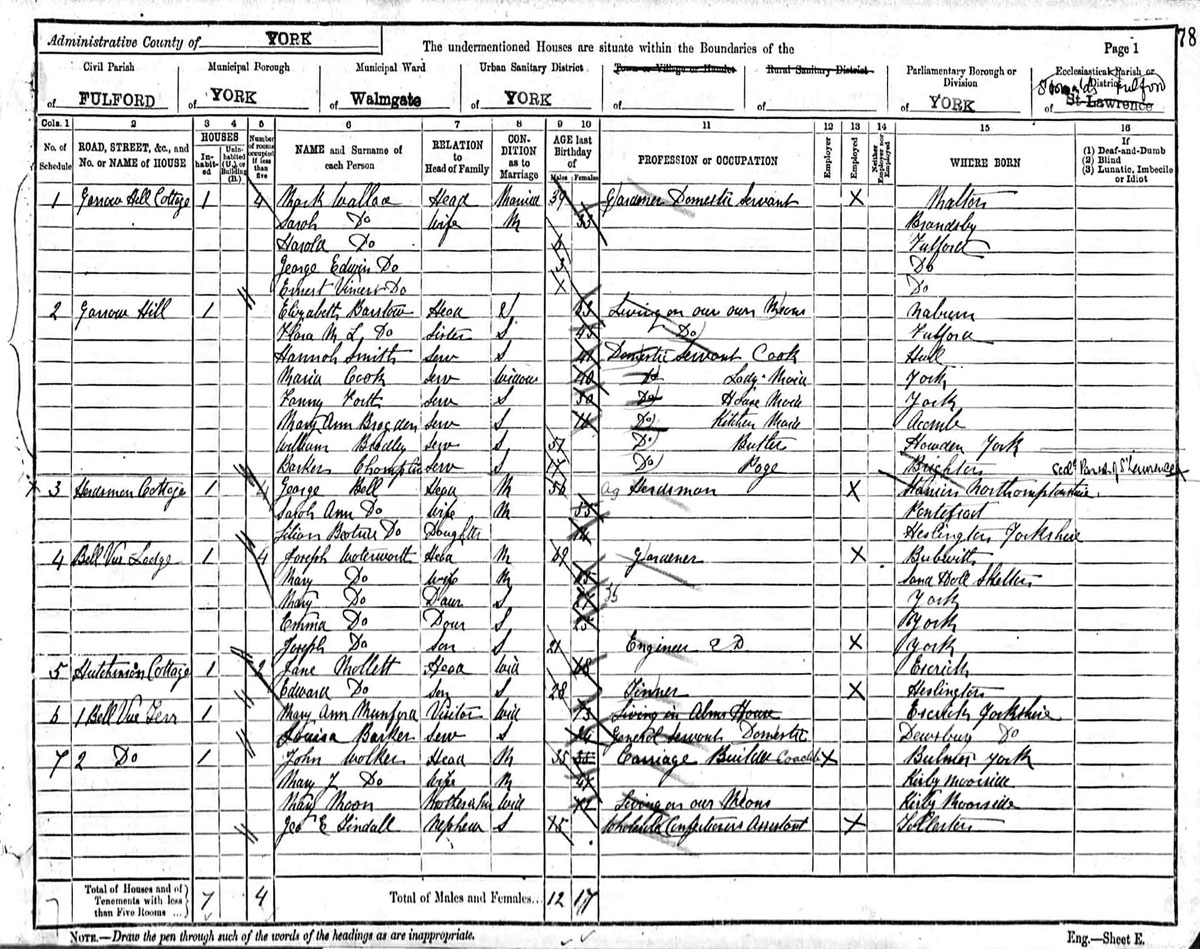 Administrative County of YORK
The undermentioned Houses are situate within the Boundaries of the
Page 1
78
Civil Parish of FULFORD
Municipal Borough of YORK
Municipal Ward of Walmgate
Urban Sanitary District of YORK
Town or Village or Hamlet of
Rural Sanitary District of
Parliamentary Borough or Division of YORK
Ecclesiastical Parish or District of St Lawrence Fulford
Cols. 1 2 3 4 5 6 7 8 9 10 11 12 13 14 15 16
No. of Schedule
ROAD, STREET, &c., and No. or NAME of HOUSE
HOUSES
Inhabited
Uninhabited (U.) or Building (B.)
Number of rooms occupied if less than five
NAME and Surname of each Person
RELATION to Head of Family
CONDITION as to Marriage
AGE last Birthday of
Males Females
PROFESSION or OCCUPATION
Employer
Employed
Neither Employer nor Employed
WHERE BORN
If (1) Deaf-and-Dumb (2) Blind (3) Lunatic, Imbecile or Idiot
1 Garrow Hill Cottage 1 4 Mark Wallace Head Married 39 Gardener Domestic Servant X Malton
Sarah Do Wife M 33 Brandsby
Harold Do Fulford
George Edwin Do Do
Ernest Do Do
2 Garrow Hill 1 Elizabeth Barstow Head Living on our own Means Naburn
Flora M L Do Sister S 45 Do Fulford
Hannah Smith Serv S Domestic Servant Cook Hull
Maria Cook Serv Widow Do Lady Maid York
Fanny Forth Serv S Do House Maid York
Mary Ann Brogden Serv S Do Kitchen Maid Acomb
William Bradley Serv S 51 Do Butler Howden York
Barker Serv S Do Page
3 Herdsman Cottage 1 4 George Bell Head M 56 Ag Herdsman X Northamptonshire
Sarah Ann Do Wife M 55 Pontefract
Do Daughter Heslington Yorkshire
4 Bell Vue Lodge 1 4 Joseph Waterworth Head M 69 Gardener X Bubwith
Mary Do Wife M
Mary Do Daur S York
Emma Do Daur S 25 York
Joseph Do Son S 21 Engineer X York
5 Hutchinson Cottage 1 2 Jane Mollett Head Wid Escrick
Edward Do Son S 28 Tinner X Heslington
6 1 Bell Vue Terr 1 Mary Ann Munford Visitor Wid 73 Living in Alms House Escrick Yorkshire
Louisa Barker Serv S General Servant Domestic Dewsbury Do
7 2 Do 1 John Walker Head M 35 Carriage Builder X Bulmer York
Mary J Do Wife M Kirby Moorside
Mary Moon Mother in Law Wid Living on our Means Kirby Moorside
Geo E Tindall Nephew S 15 Wholesale Confectioners Assistant X
Total of Houses and of Tenements with less than Five Rooms ... 7 4
Total of Males and Females... 12 17
NOTE.—Draw the pen through such of the words of the headings as are inappropriate.
Eng.—Sheet E.